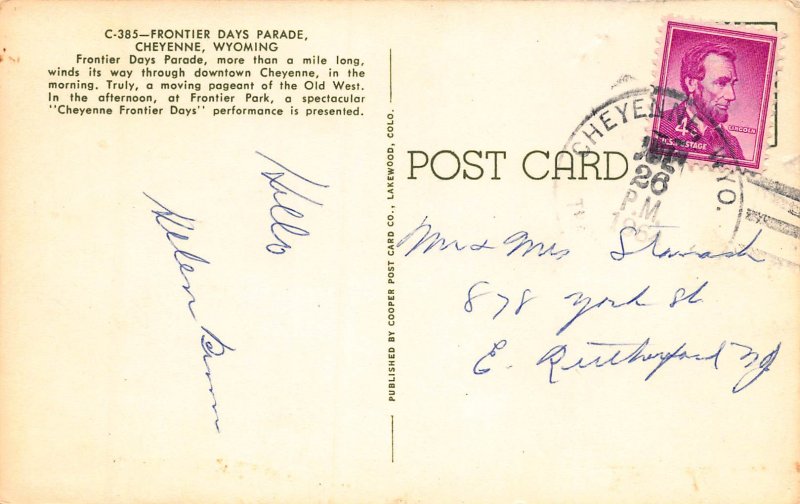 C-385—FRONTIER DAYS PARADE,
CHEYENNE, WYOMING
Frontier Days Parade, more than a mile long,
winds its way through downtown Cheyenne, in the
morning. Truly, a moving pageant of the Old West.
In the afternoon, at Frontier Park, a spectacular
"Cheyenne Frontier Days" performance is presented.
Hello
Helen
PUBLISHED BY COOPER POST CARD CO., LAKEWOOD, COLO.
POST CARD
4¢
LINCOLN
U.S. POSTAGE
CHEYENNE, WYO.
26
P.M.
Mr & Mrs
878 York St
E. Rutherford NJ